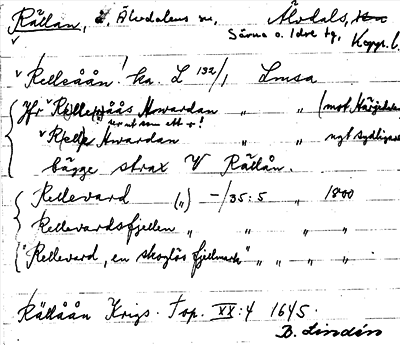 Rällan, s. Älvdalens sn, Älvdals,
Särna o. Idre tg, Koppr. l.
Relleåån! ka. L 132/1 Lmsa
Jfr Rellejåås Howardan " " (mot Härjedalen
ser ut som ett r!
Relle Howardan " " nytt sydligare
bägge strax V Rällån.
Rellevard (") -/35:5 " 1800
Rellevardsfjellen " " " "
"Rellevard, en skoglös fjellmark" " " " "
Rällåån Krigs. Top. XX:4 1645.
B. Lindén